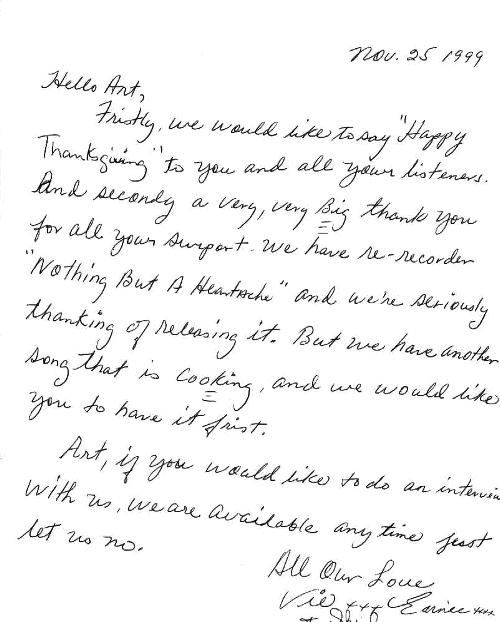 Nov. 25 1999
Hello Art,
Fristly, we would like to say "Happy
Thanksgiving" to you and all your listeners.
And secondly a very, very Big thank you
for all your surpart. We have re-recorder
"Nothing But A Heartache" and we're seriously
thanking of releasing it. But we have another
song that is cooking, and we would like
you to have it frist.
Art, if you would like to do an interview
with us, we are available any time jest
let us no.
All Our Love
Vie +++ Earnie +++